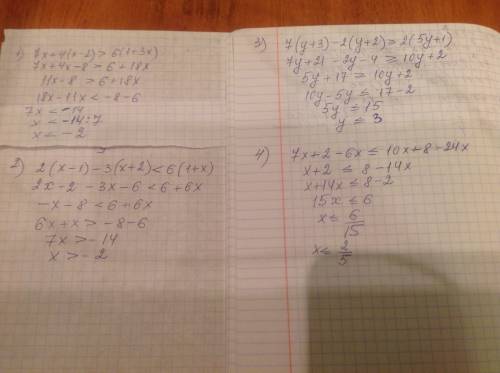 1) 7x+4(x-2) > 6(1+3x)
7x+4x-8 > 6+18x
11x-8 > 6+18x
18x-11x < -8-6
7x < -14
x < -14:7
x < -2
2) 2(x-1)-3(x+2) < 6(1+x)
2x-2-3x-6 < 6+6x
-x-8 < 6+6x
6x+x > -8-6
7x > -14
x > -2
3) 7(y+3)-2(y+2) ≥ 2(5y+1)
7y+21-2y-4 ≥ 10y+2
5y+17 ≥ 10y+2
10y-5y ≤ 17-2
5y ≤ 15
y ≤ 3
4) 7x+2-6x ≤ 10x+8-24x
x+2 ≤ 8-14x
x+14x ≤ 8-2
15x ≤ 6
x ≤ 6/15
x ≤ 2/5